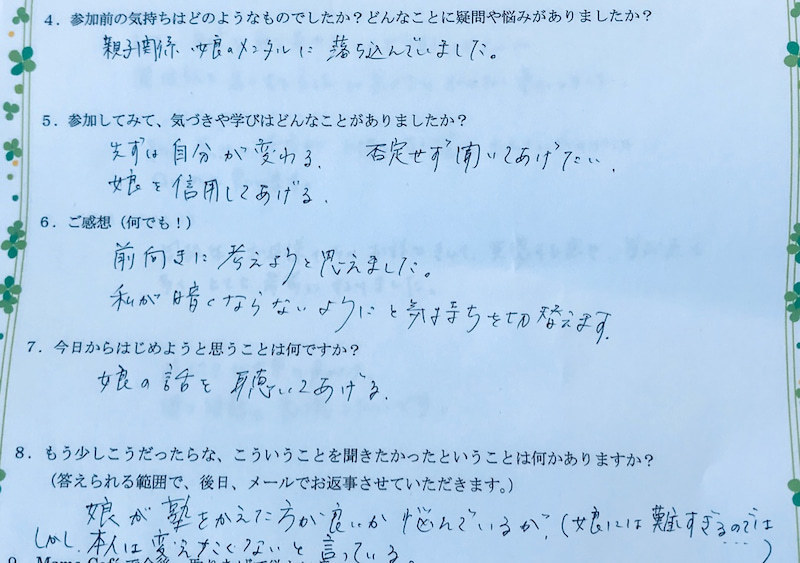 ４．参加前の気持ちはどのようなものでしたか？どんなことに疑問や悩みがありましたか？
親子関係、娘のメンタルに落ち込んでいました。
５．参加してみて、気づきや学びはどんなことがありましたか？
先ずは自分が変わる。 否定せず聞いてあげたい。
娘を信用してあげる。
６．ご感想（何でも！）
前向きに考えようと思えました。
私が暗くならないようにと気持ちを切り替えます。
７．今日からはじめようと思うことは何ですか？
娘の話を聴いてあげる。
８．もう少しこうだったらな、こういうことを聞きたかったということは何かありますか？
（答えられる範囲で、後日、メールでお返事させていただきます。）
娘が塾をかえた方が良いか悩んでいるが、（娘には難しすぎるのでは…）
しかし、本人は変えたくないと言っている。